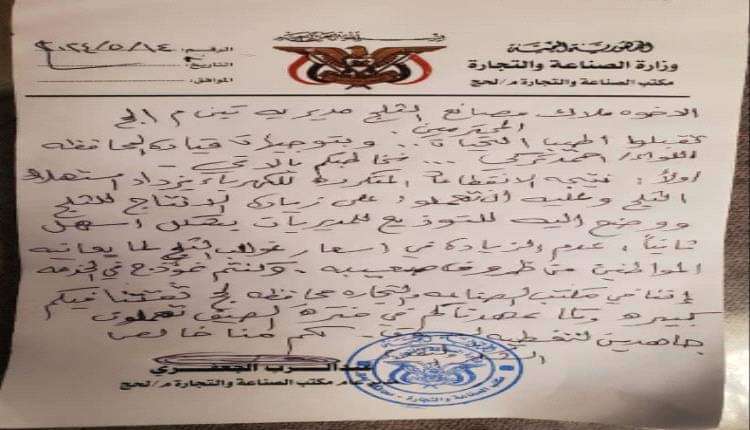 الجمهورية اليمنية
وزارة الصناعة والتجارة
مكتب الصناعة والتجارة م/لحج
الرقم:
٢٠٢٤/٥/١٤
التاريخ:
الموافق:
الاخوه ملاك مصانع الثلج مديريه تبن م لحج
المحترمين
تقبلوا اطيب التحيات .. وبتوجيهات قياده المحافظه
اللواء/ احمد تركي ... نخاطبكم بالاتي
اولاً: نتيجه الانقطاعات المتكررة للكهرباء يزداد استهلاك
الثلج وعليه ان تعملوا على زيادة الانتاج للثلج
ووضع اليه للتوزيع للمديريات بشكل اسهل
ثانياً: عدم الزيادة في اسعار قوالب الثلج لما يعانيه
المواطنين من ظروف صعيبه . وانتم نموذج في الخدمه
اننا في مكتب الصناعه والتجاره محافظه لحج ثقتنا فيكم
كبيره كما عهدناكم في فتره الصيف تعملون
جاهدين لتغطيه ... لكم منا خالص
عبدالرب الجعفري
مدير عام مكتب الصناعة والتجارة م/لحج